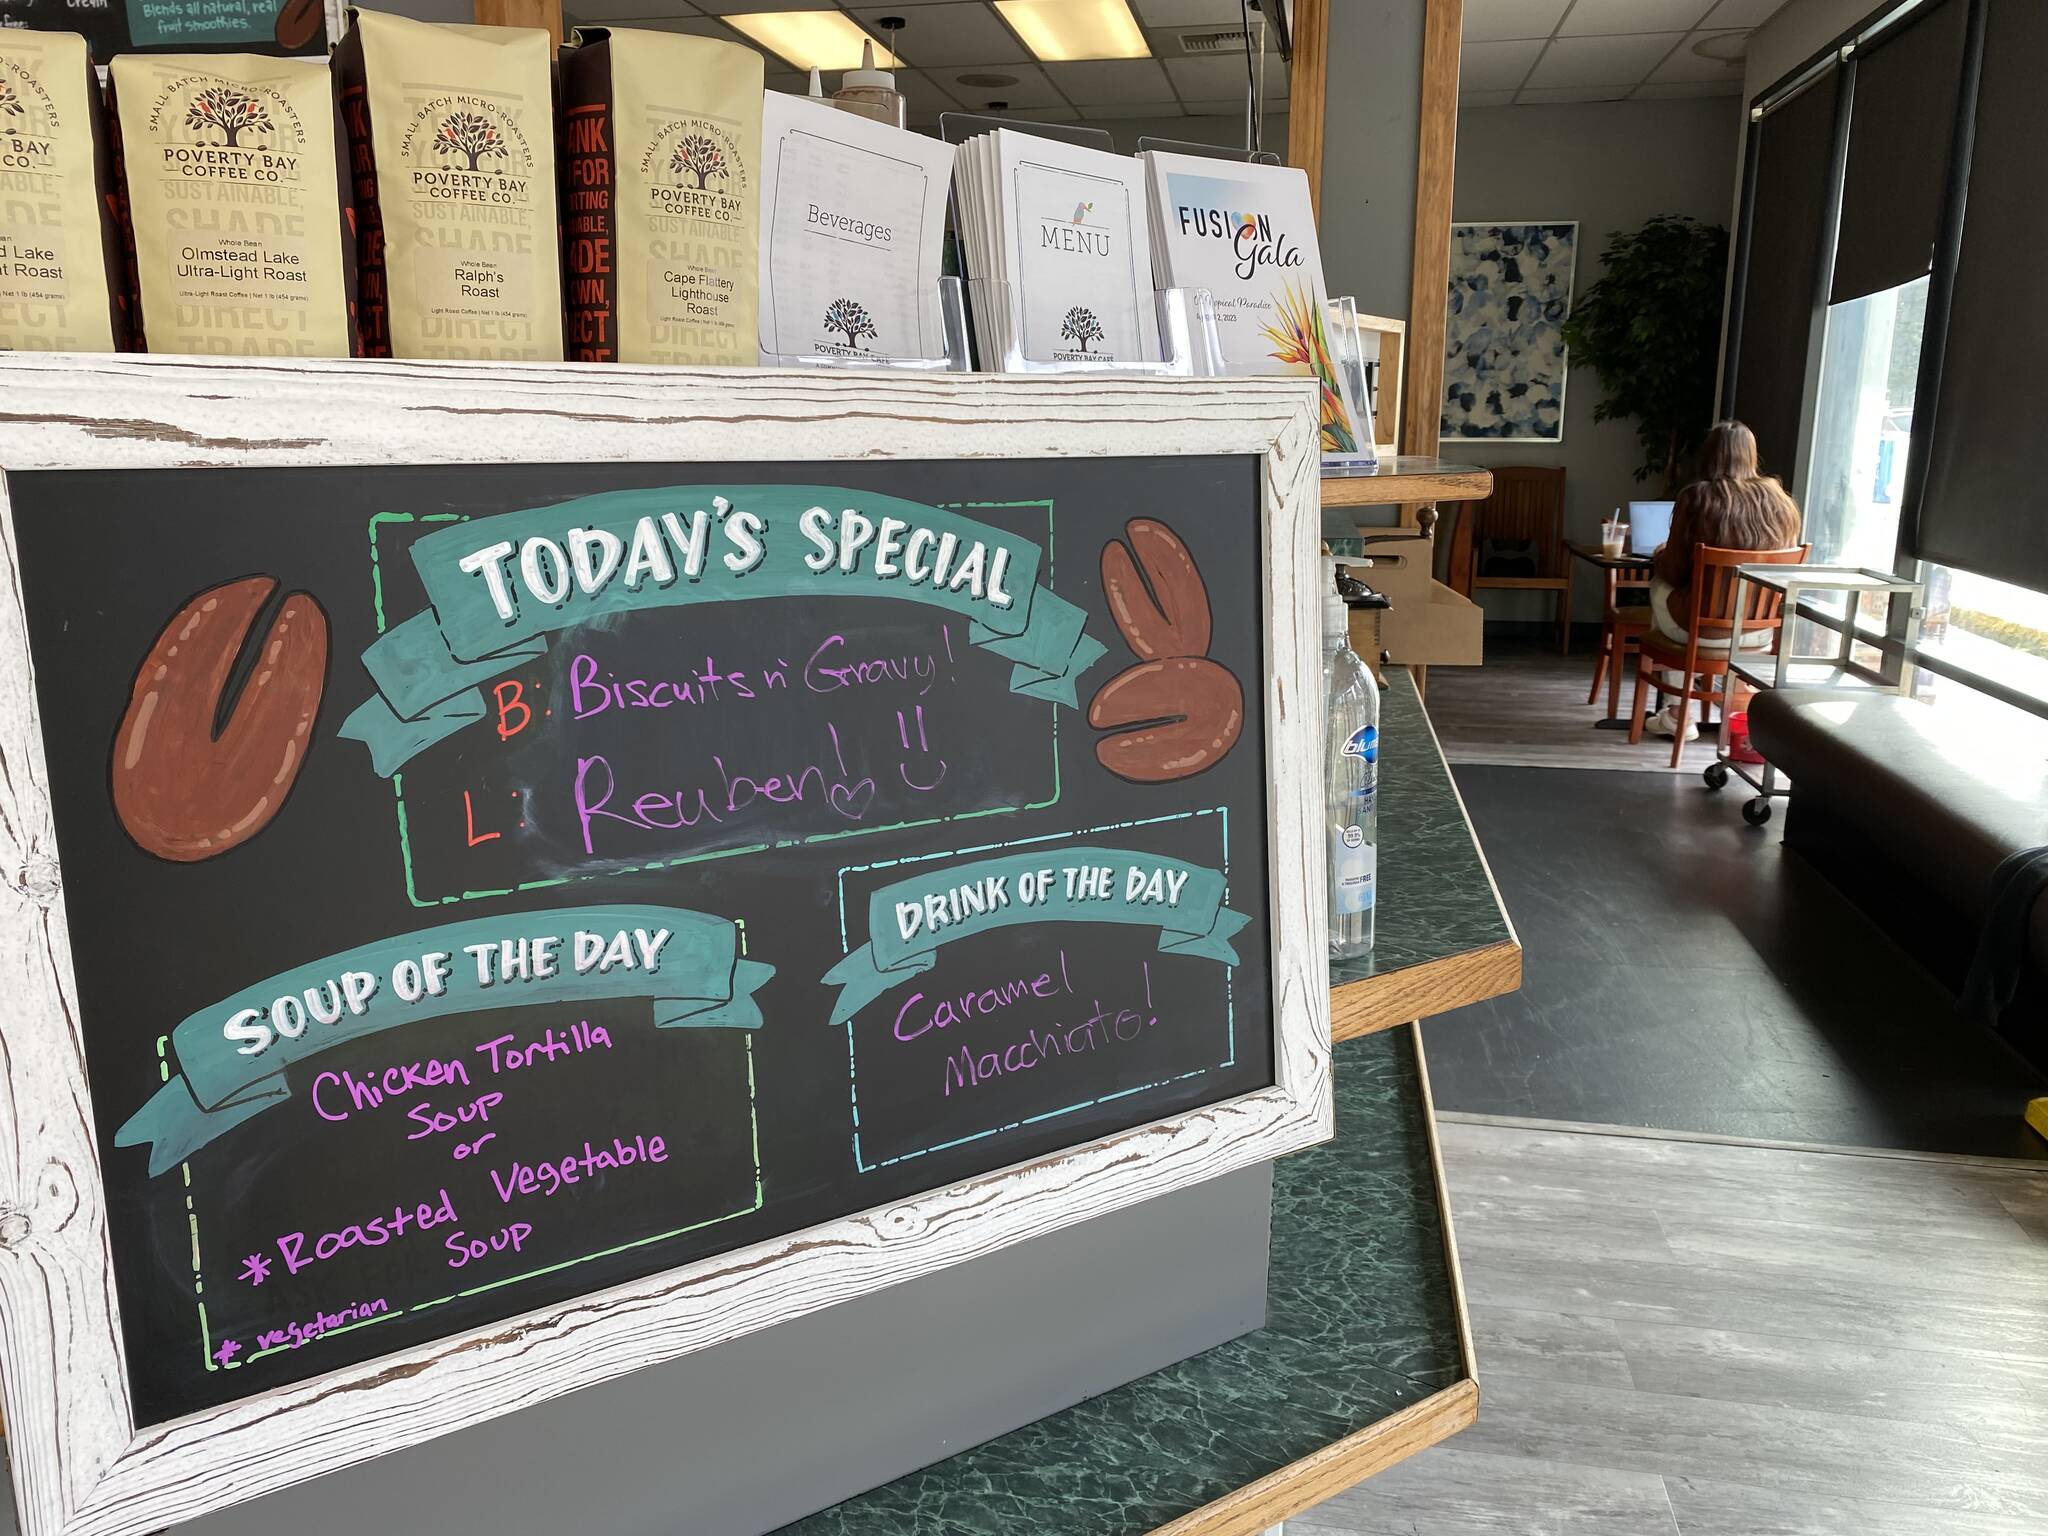 Blends all natural, real
fruit smoothies.
SMALL BATCH MICRO-ROASTERS
BAY
CO.
Lake
Roast
SMALL BATCH MICRO-ROASTERS
POVERTY BAY
COFFEE CO.
SUSTAINABLE,
SHADE
Whole Bean
Olmstead Lake
Ultra-Light Roast
Ultra-Light Roast Coffee | Net 1 lb (454 grams)
DIRECT
TRADE
SMALL BATCH MICRO-ROASTERS
POVERTY BAY
COFFEE CO.
SUSTAINABLE,
SHADE
Whole Bean
Ralph's
Roast
Light Roast Coffee | Net 1 lb (454 grams)
DIRECT
TRADE
SMALL BATCH MICRO-ROASTERS
POVERTY BAY
COFFEE CO.
SUSTAINABLE,
Whole Bean
Cape Flattery
Lighthouse
Roast
DIRECT
TRADE
Beverages
POVERTY BAY CAFE
MENU
POVERTY BAY CAFE
FUSION
Gala
Tropical Paradise
2, 2023
TODAY'S SPECIAL
B: Biscuits n' Gravy!
L: Reuben!
SOUP OF THE DAY
Chicken Tortilla
Soup
or
*Roasted Vegetable
Soup
* vegetarian
DRINK OF THE DAY
Caramel
Macchiato!
FREE